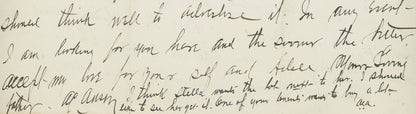 should think well to advertise it. In any event
I am looking for you here and the sooner the better
accept my love for your self and Your Loving
father. A C Anson I think Stella wants the lot next to her. I should
like to see her get it. One of your tenants wants to buy a lot